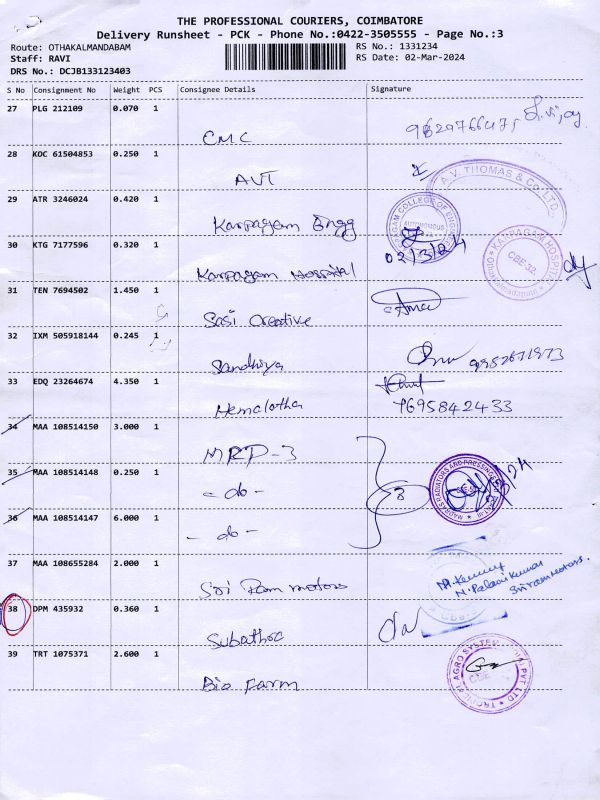 THE PROFESSIONAL COURIERS, COIMBATORE
Delivery Runsheet - PCK - Phone No.:0422-3505555 - Page No.:3
Route: OTHAKALMANDABAM
RS No.: 1331234
Staff: RAVI
RS Date: 02-Mar-2024
DRS No.: DCJB133123403
S No Consignment No Weight PCS Consignee Details Signature
27 PLG 212109 0.070 1
CMC
28 KOC 61504853 0.250 1
AVT
A.V. THOMAS & CO LTD.
29 ATR 3246024 0.420 1
Karpagam Engg
AUTONOMOUS
02/3/24
30 KTG 7177596 0.320 1
Karpagam Hospital
KARPAGAM HOSPITAL
CBE-32.
31 TEN 7694502 1.450 1
Sasi Creative
32 IXM 505918144 0.245 1
Sandhiya
33 EDQ 23264674 4.350 1
Hemalatha
7695842433
34 MAA 108514150 3.000 1
MRP-3
35 MAA 108514148 0.250 1
- do -
3
36 MAA 108514147 6.000 1
- do -
37 MAA 108655284 2.000 1
Sri Ram motors
N. Palanikumar
Sriram motors.
38 DPM 435932 0.360 1
Subathra
39 TRT 1075371 2.600 1
Bio Farm